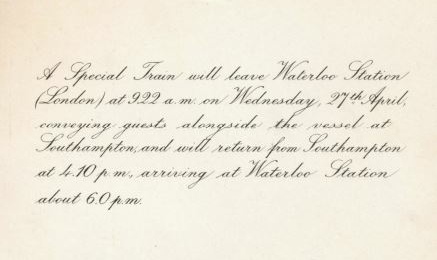 A Special Train will leave Waterloo Station
(London) at 9.22 a.m. on Wednesday, 27th April,
conveying guests alongside the vessel at
Southampton, and will return from Southampton
at 4.10 p.m., arriving at Waterloo Station
about 6.0 p.m.